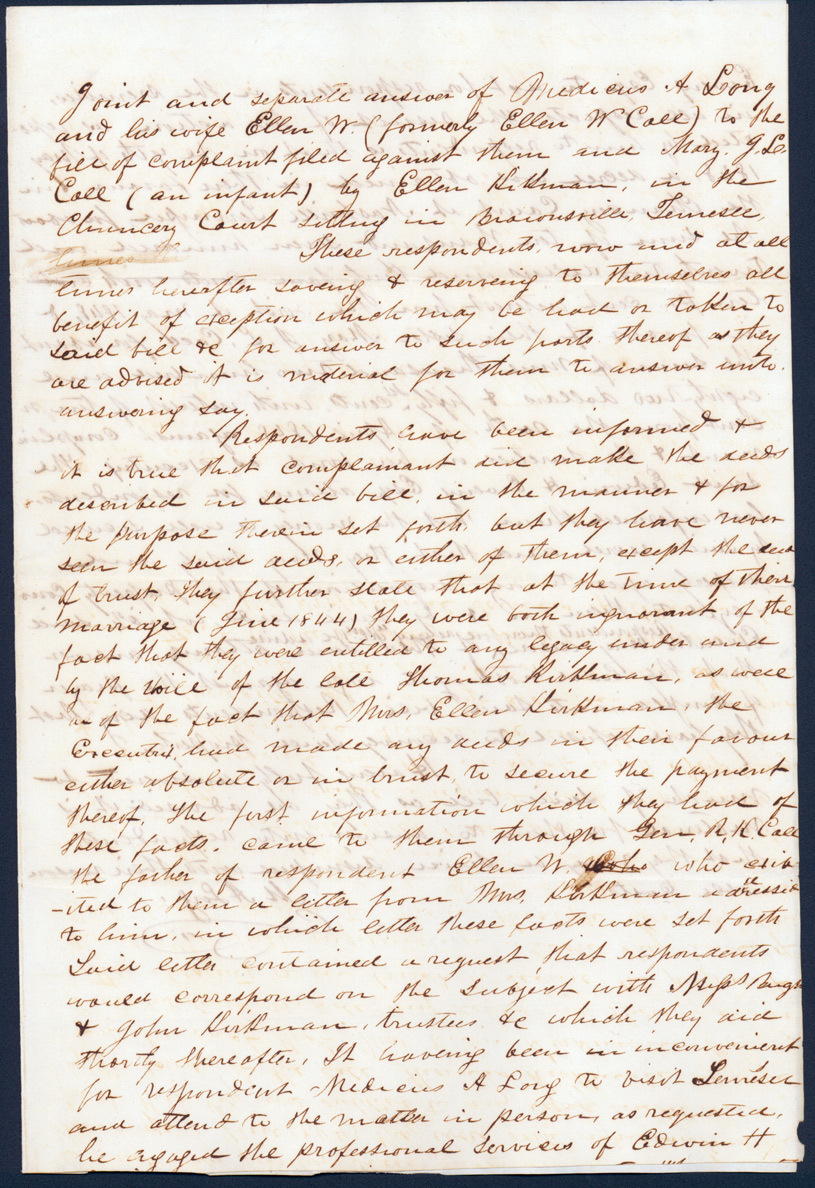 Joint and separate answer of Medicus A Long
and his wife Ellen W. (formerly Ellen W Call) to the
bill of complaint filed against them and Mary. J. L.
Call (an infant) by Ellen Kirkman, in the
Chancery Court sitting in Brownsville, Tennessee,
These respondents, now and at all
times hereafter saveing & reserveing to themselves all
benefit of exception which may be had or taken to
said bill &c for answer to such parts thereof as they
are advised it is material for them to answer unto.
answering say.
Respondents have been informed &
it is true that complainant did make the deeds
described in said bill, in the manner & for
the purpose therein set forth, but they have never
seen the said deeds, or either of them, except the deed
of trust, they further state that at the time of their
marriage (June 1844) they were both ignorant of the
fact that they were entitled to any legacy under and
by the will of the late Thomas Kirkman, as well
as of the fact that Mrs. Ellen Kirkman the
Executrix, had made any deeds in their favour
either absolute or in trust, to secure the payment
thereof, The first information which they had of
these facts, came to them through Gen. R. K. Call
the father of respondent Ellen W. who exib
-ited to them a letter from Mrs. Kirkman adressed
to him, in which letter these facts were set forth
Said letter contained a request, that respondents
would correspond on the subject with Messrs
& John Kirkman, trustees &c which they did
shortly thereafter, It haveing been in inconvenient
for respondent Medicus A Long to visit Tennessee
and attend to the matter in person, as requested,
he egaged the professional services of Edwin H